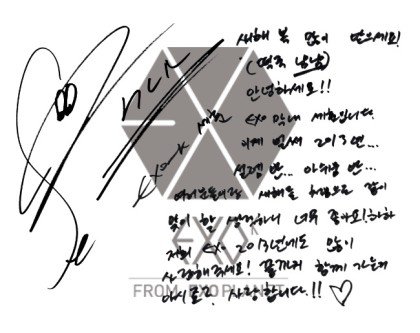 새해 복 많이 받으세요!
(떡국 냠냠)
안녕하세요!!
EXO 막내 세훈입니다.
이제 벌써 2013년...
설렘 반... 아쉬움 반...
여러분들이랑 새해를 처음으로 같이
맞이 할 생각하니 너무 좋아요!하하
저희 EXO 2013년에도 많이
사랑해주세요! 끝까지 함께 가는거
아시죠? 사랑합니다.!! ♡
EXO
FROM. EXOPLANET